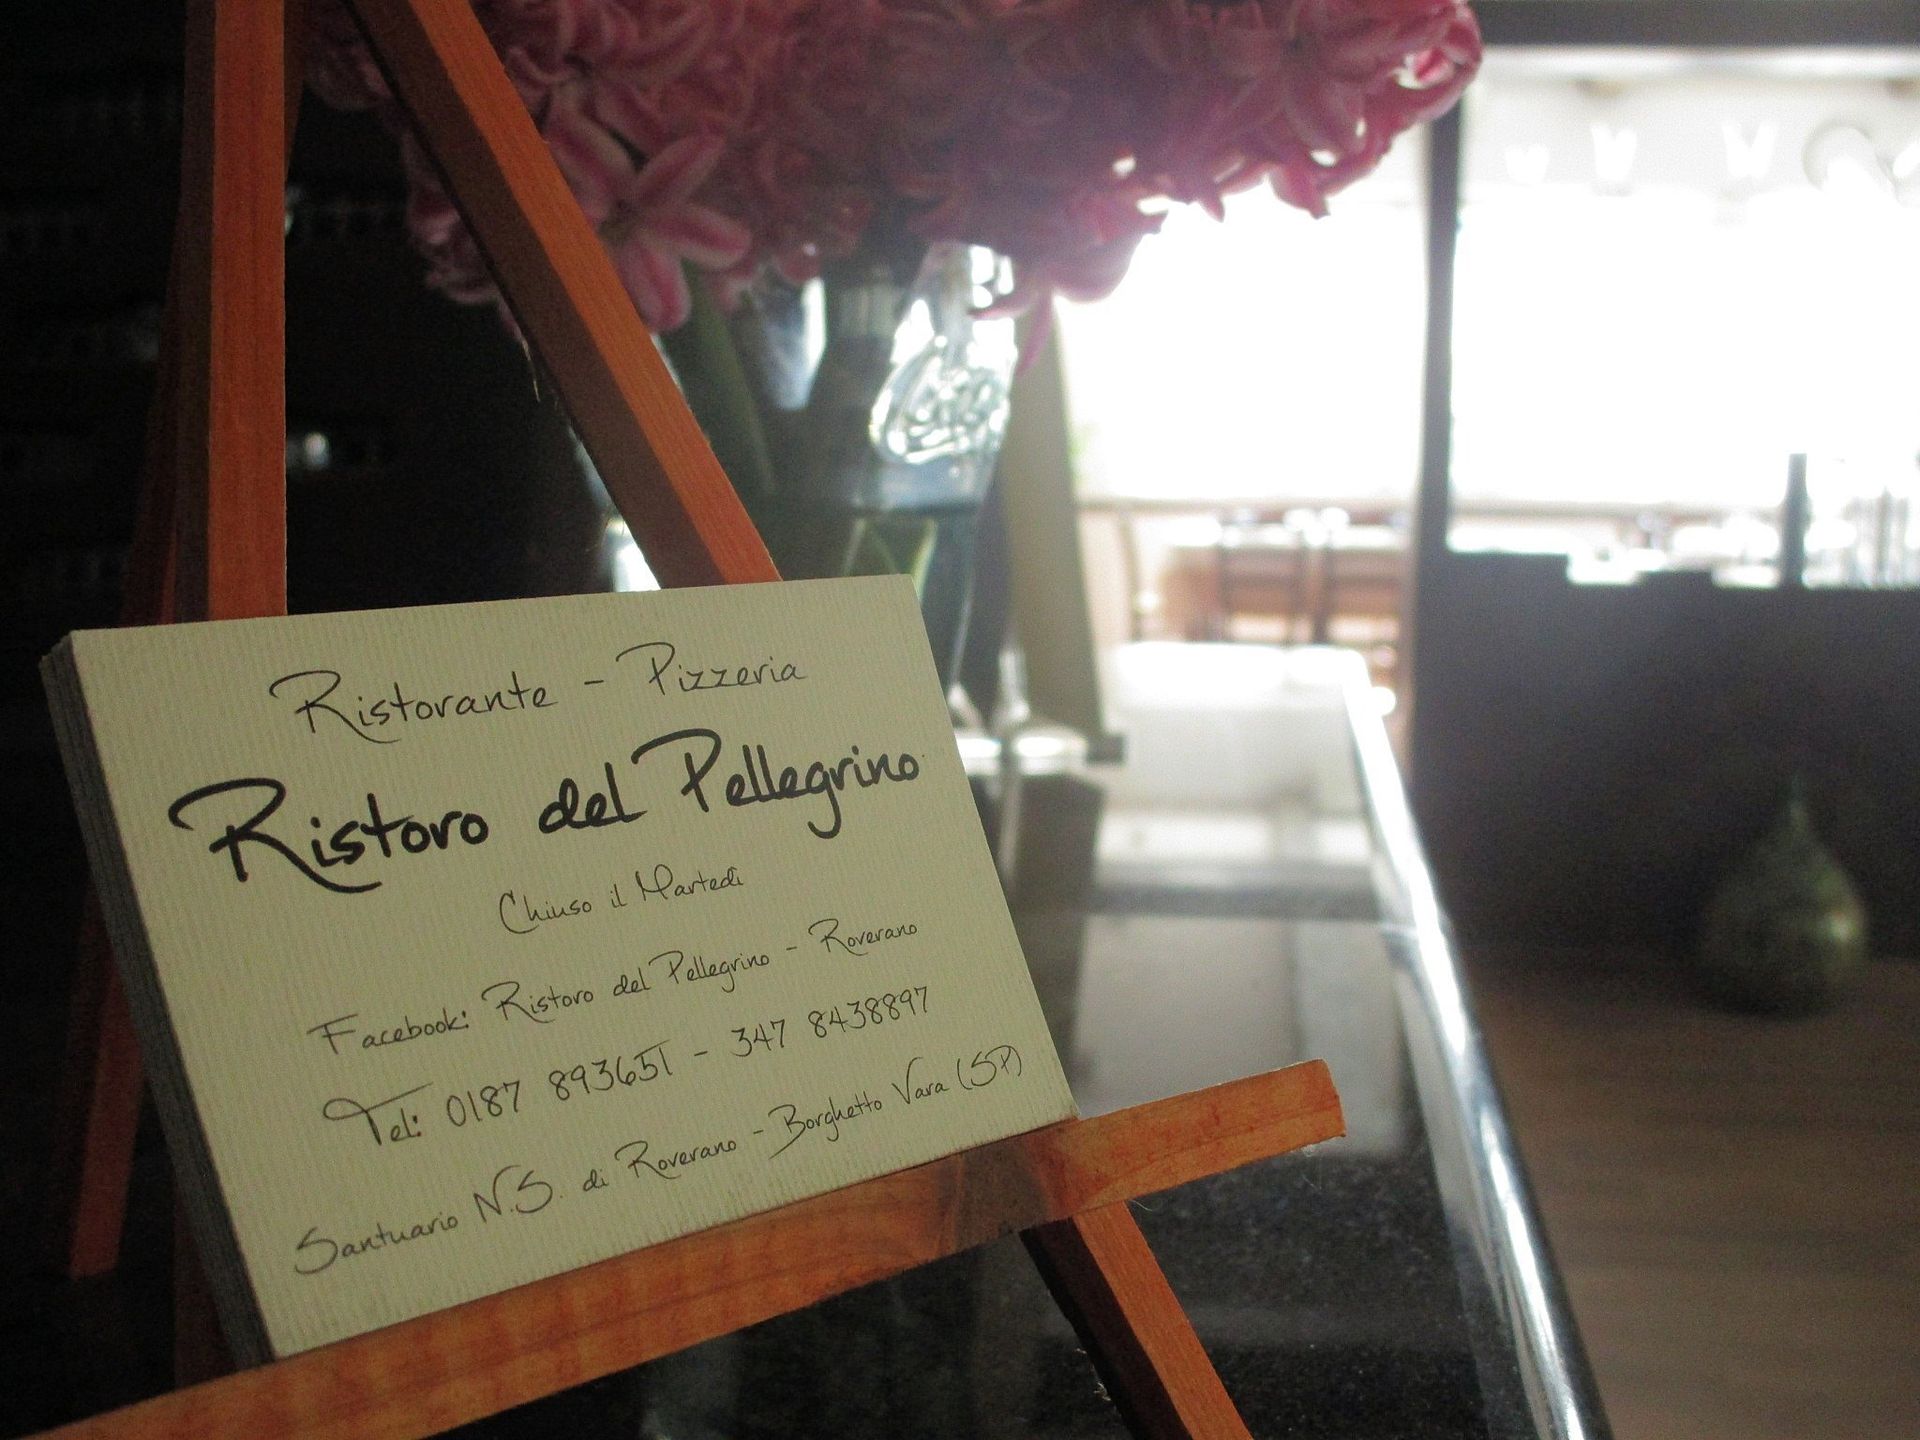 Ristorante - Pizzeria
Ristoro del Pellegrino
Chiuso il Martedì
Facebook: Ristoro del Pellegrino - Roverano
Tel: 0187 893651 - 347 8438897
Santuario N.S. di Roverano - Borghetto Vara (SP)